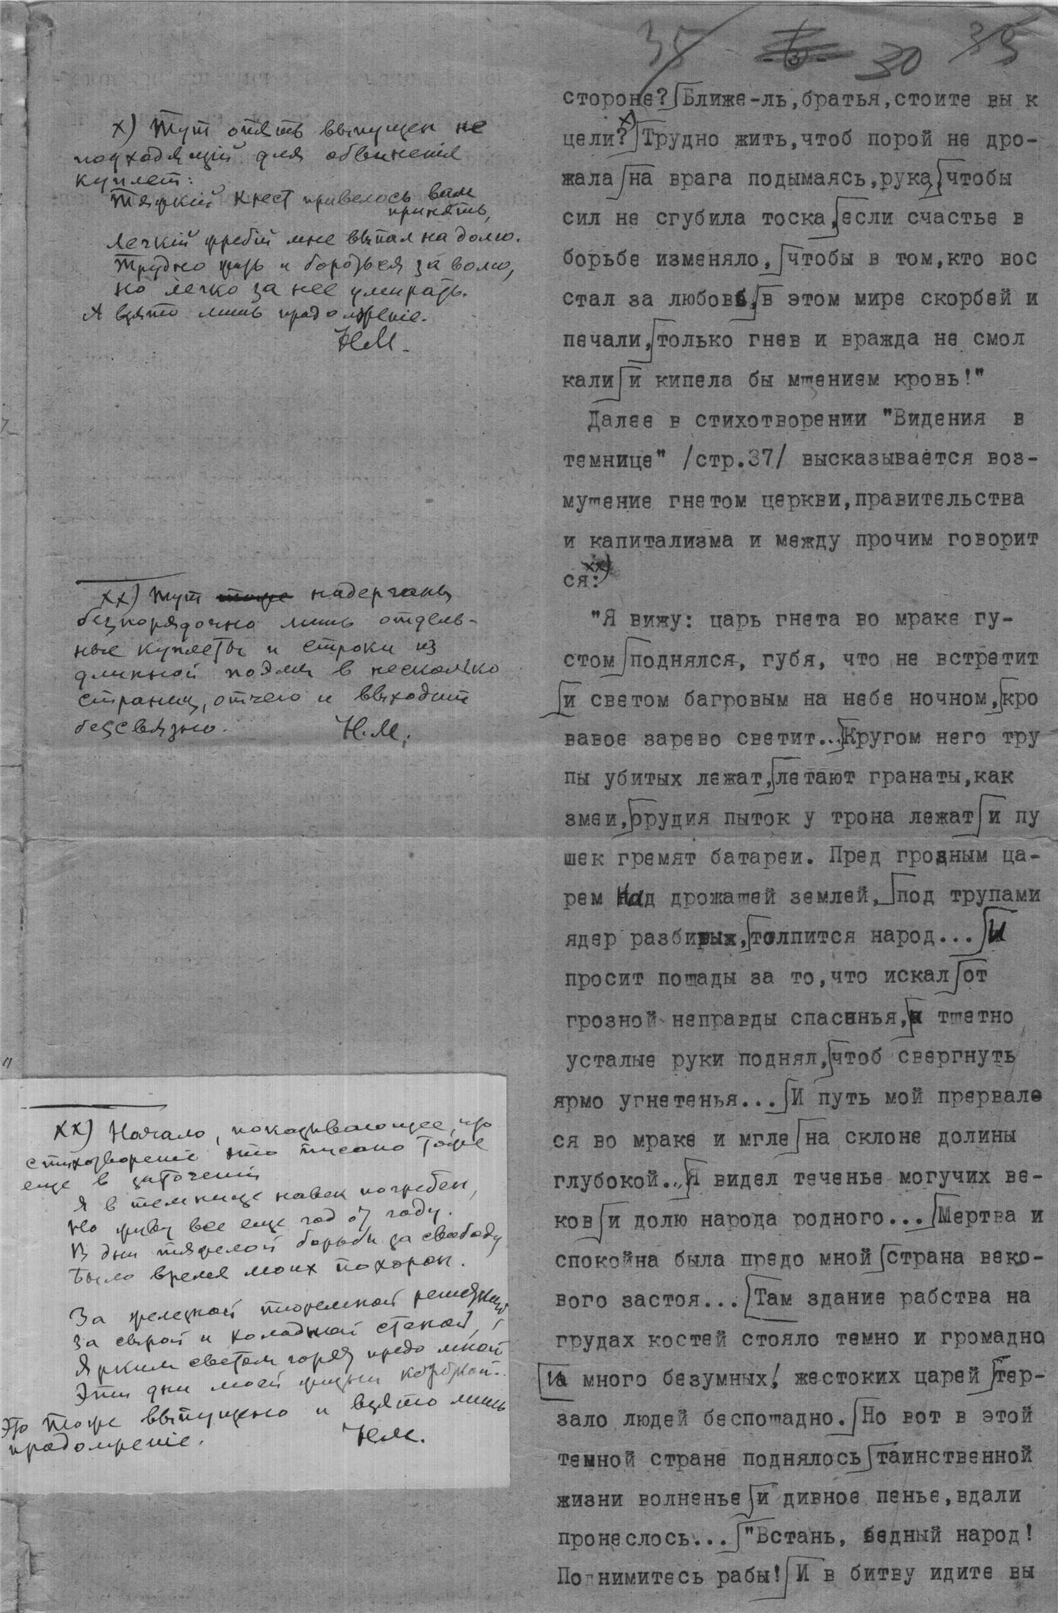 35 30 35
х) Тут опять выпущен не
подходящий для обвиненія
куплет:
Тяжкій крест привелось вам
принять,
Легкій жребій мне выпал на долю.
Трудно жить и бороться за волю,
Но легко за нее умирать.
А взято лишь продолженіе.
Н.М.
хх) Тут тоже надерганы
безпорядочно лишь отдель-
ные куплеты и строки из
длинной поэмы в несколько
страниц, отчего и выходит
безсвязно. Н.М.
хх) Начало, показывающее, что
стихотвореніе это писано тоже
еще в заточеніи
Я в темнице навек погребен,
Но живу все еще год от году.
В дни тяжелой борьбы за свободу
Было время моих похорон.
За железной тюремной решеткой,
За сырой и холодной стеной,
Ярким светом горят предо мной
Эти дни моей жизни короткой..
Это тоже выпущено и взято лишь
продолженіе. Н.М.
стороне? Ближе-ль,братья,стоите вы к
цели?х) Трудно жить,чтоб порой не дро-
жала на врага подымаясь,рука,чтобы
сил не сгубила тоска,если счастье в
борьбе изменяло, чтобы в том,кто вос
стал за любовь,в этом мире скорбей и
печали,только гнев и вражда не смол
кали и кипела бы мщением кровь!"
Далее в стихотворении "Видения в
темнице" /стр.37/ высказывается воз-
мущение гнетом церкви,правительства
и капитализма и между прочим говорит
ся:хх)
"Я вижу: царь гнета во мраке гу-
стом поднялся, губя, что не встретит
и светом багровым на небе ночном,кро
вавое зарево светит...Кругом него тру
пы убитых лежат,летают гранаты,как
змеи,орудия пыток у трона лежат и пу
шек гремят батареи. Пред грозным ца-
рем над дрожащей землей, под трупами
ядер разбитых,толпится народ... И
просит пощады за то,что искал от
грозной неправды спасенья,и тщетно
усталые руки поднял,чтоб свергнуть
ярмо угнетенья... И путь мой прервалс
ся во мраке и мгле на склоне долины
глубокой...Я видел теченье могучих ве-
ков и долю народа родного... Мертва и
спокойна была предо мной страна веко-
вого застоя... Там здание рабства на
грудах костей стояло темно и громадно
и много безумных, жестоких царей тер-
зало людей беспощадно. Но вот в этой
темной стране поднялось таинственной
жизни волненье и дивное пенье,вдали
пронеслось... "Встань, бедный народ!
Поднимитесь рабы! И в битву идите вы